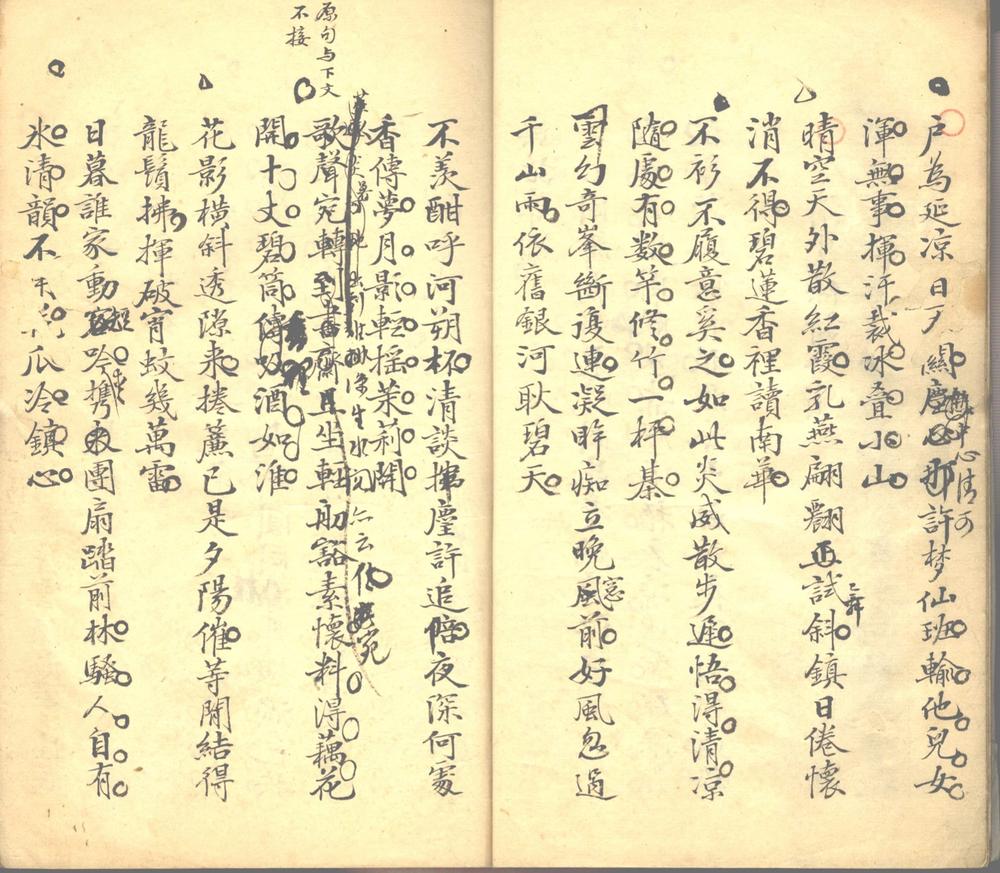 戶為延涼日夕關塵心那許梦仙班輸他兒女
渾無事揮汗裁冰疊小山
晴空天外散紅霞乳燕翩翾正試斜鎮日倦懷
消不得碧蓮香裡讀南華
不衫不履意奚之如此炎威散步遲悟得清涼
隨處有数竿修竹一枰棊
雲幻奇峯斷復連凝眸痴立晚風前好風忽過
千山雨依舊銀河耿碧天
原句与下文
不接
不羨酣呼河朔杯清談揮麈許追陪夜深何處
香傳夢月影輕搖茉莉開
歌聲宛轉到書齋且坐輕舠豁素懷料得藕花
開十丈碧筒傳吸酒如淮
花影橫斜透隙来捲簾已是夕陽催等閒結得
龍鬚拂揮破宵蚊幾萬雷
日暮誰家動吟携團扇踏前林騷人自有
氷清韻不瓜冷鎮心